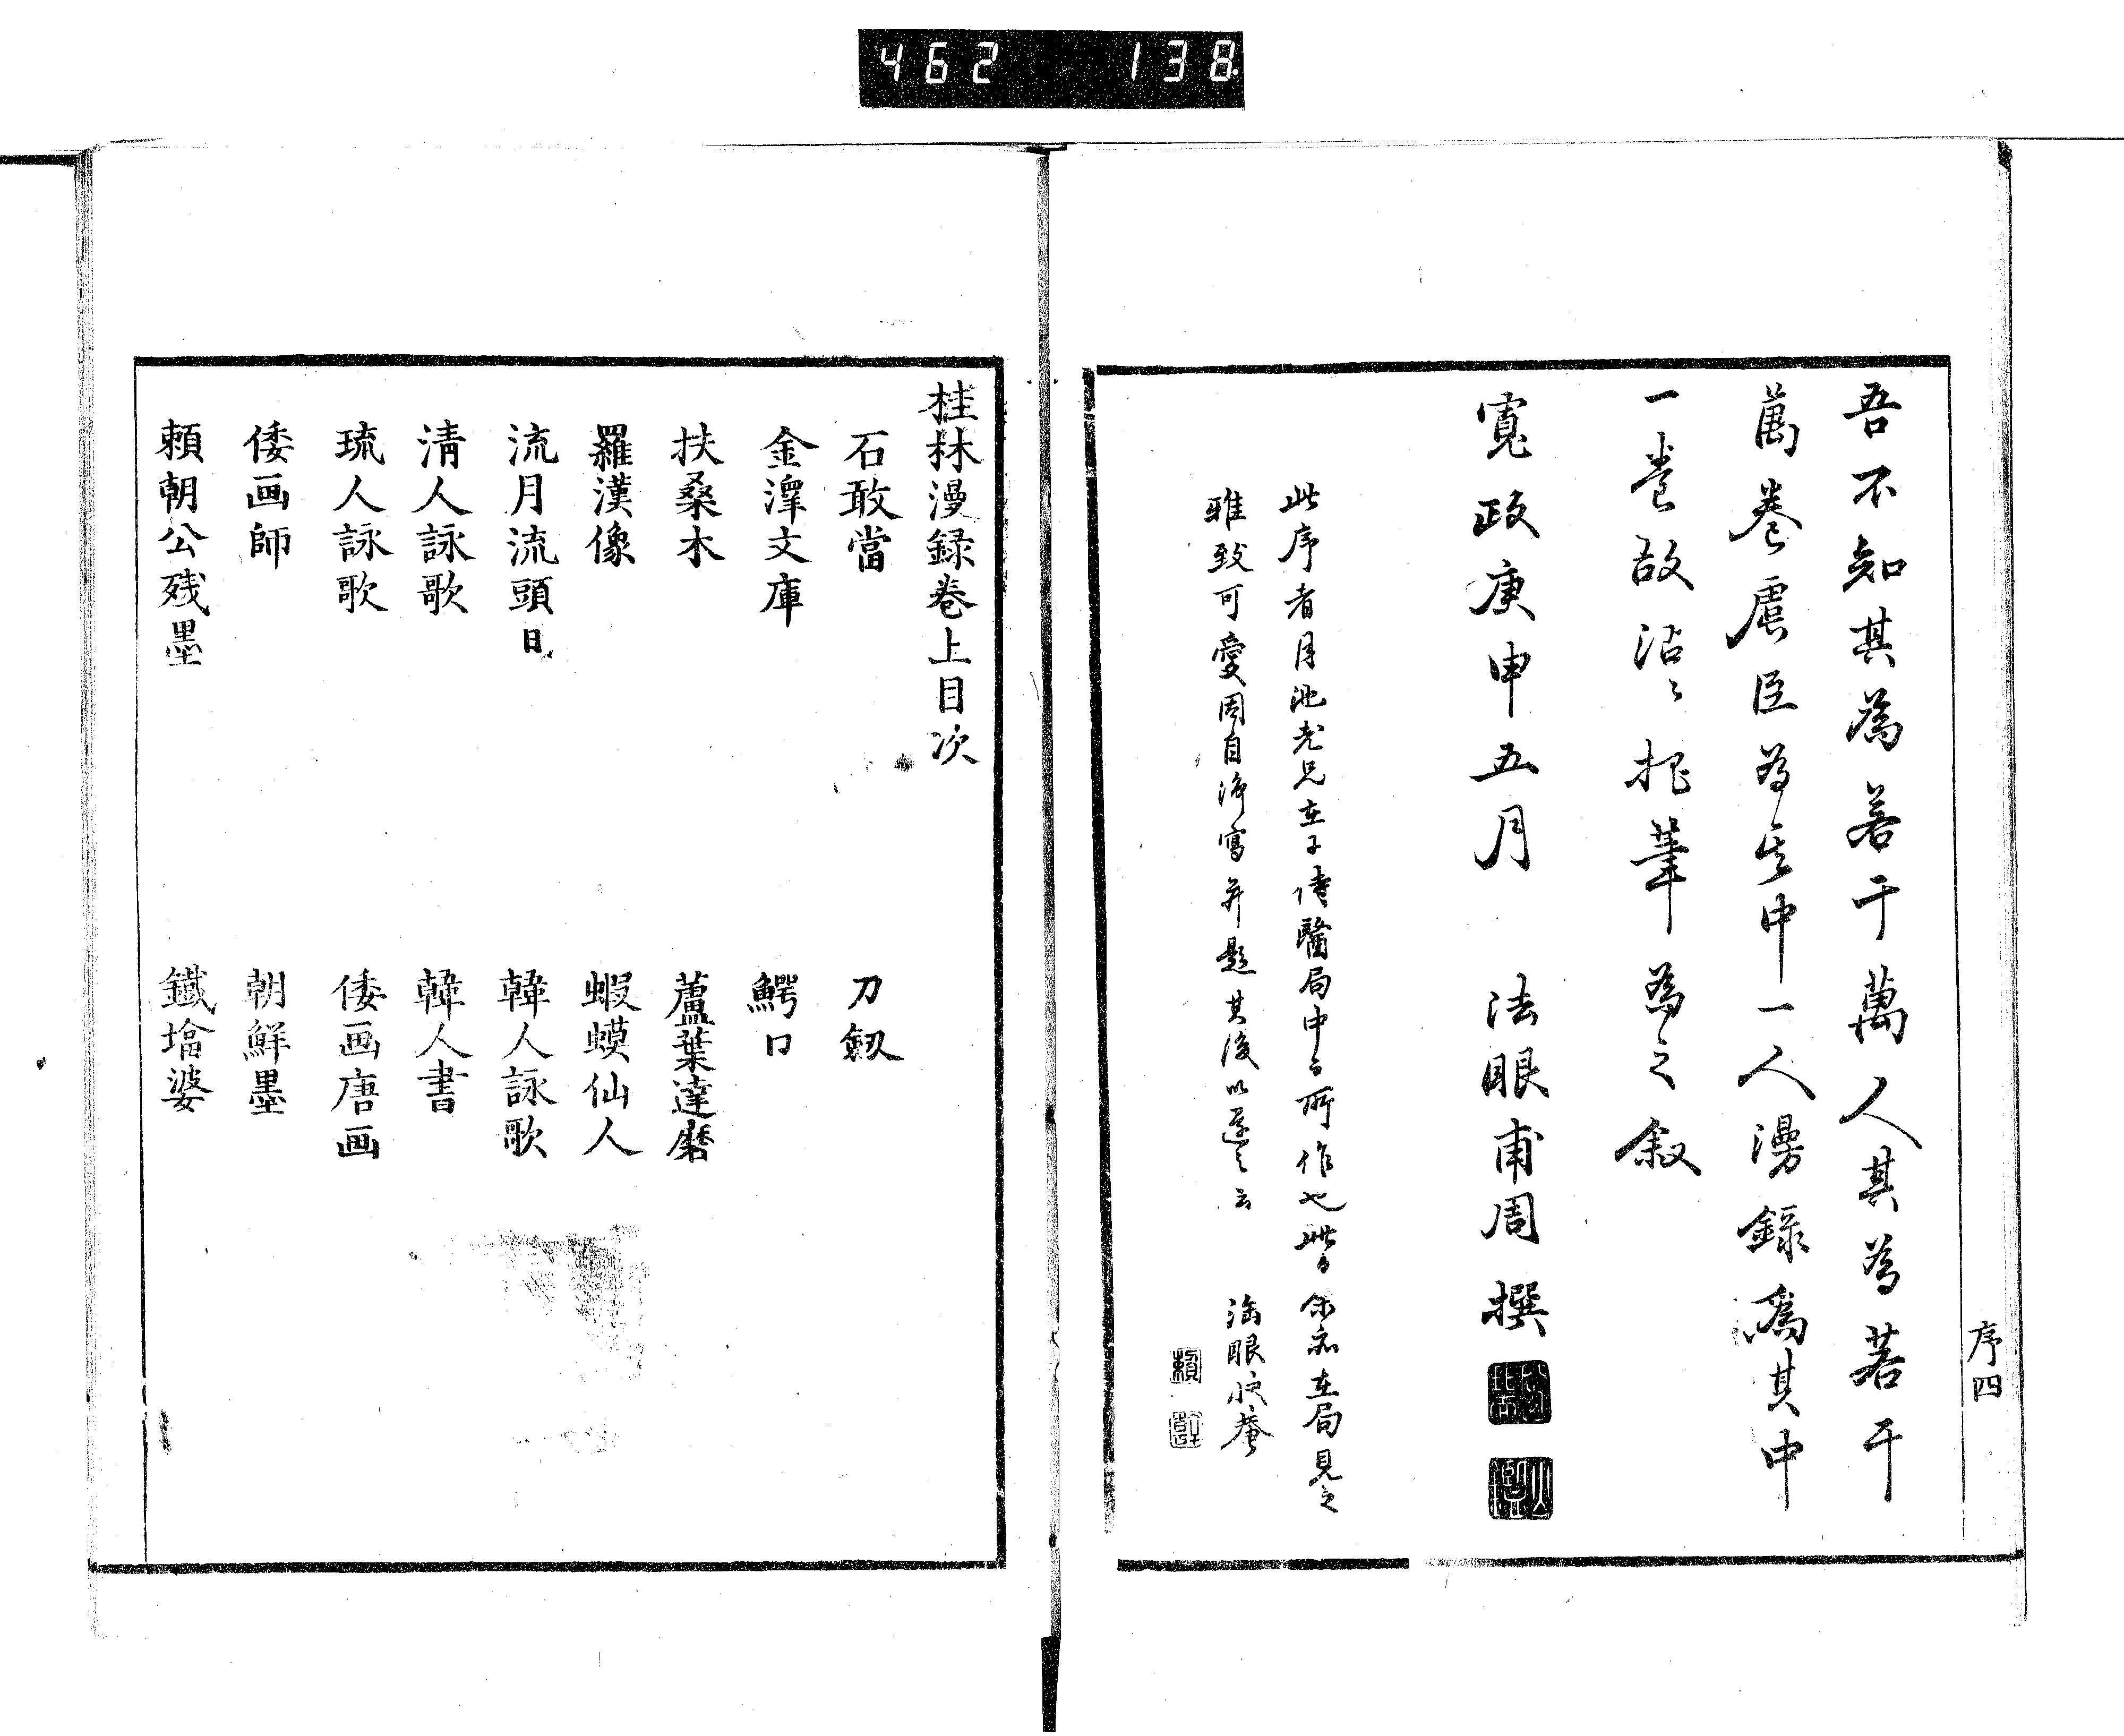 462 138
序四
吾不知其為若干萬人其為若干
萬巻虞臣為其中一人漫録為其中
一巻故沾〻把筆為之叙
寛政庚申五月 法眼甫周撰
此序者月池老兄在于侍醫局中〻所作也此日余亦在局見之
雅致可愛因自浄寫并題其後以還之云 法眼 菴
桂林漫録巻上目次
石敢當 刀劔
金澤文庫 鰐口
扶桑木 蘆葉達磨
羅漢像 蝦蟇仙人
流月流頭日 韓人詠歌
清人詠歌 韓人書
琉人詠歌 倭画唐画
倭画師 朝鮮墨
頼朝公残墨 鐵塔婆